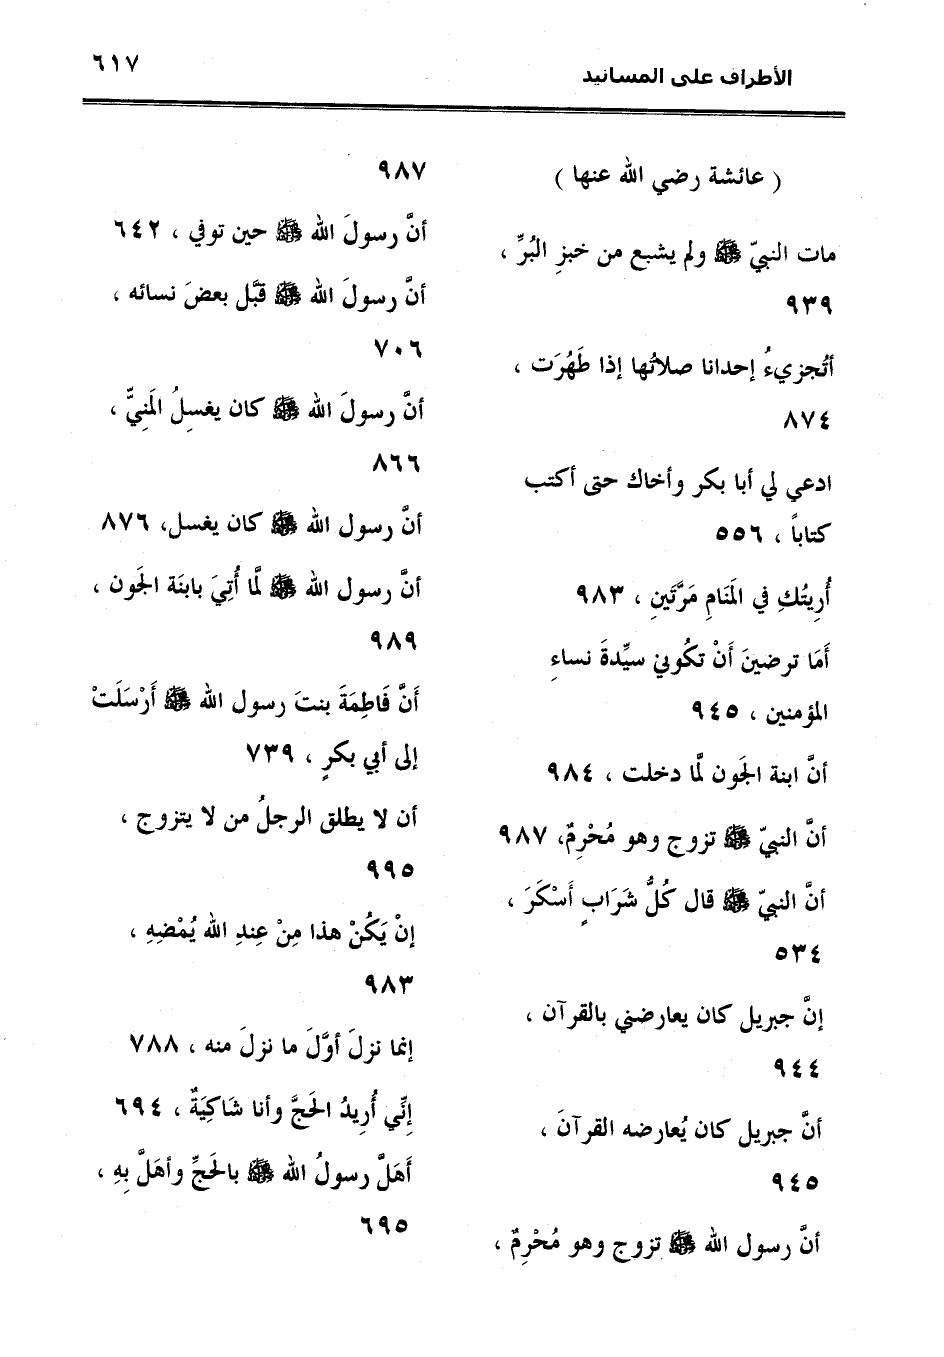 الأطراف على المسانيد
٦١٧
( عائشة رضي الله عنها )
مات النبيّ ﷺ ولم يشبع من خبزِ البُرِّ ،
٩٣٩
أتُجزيءُ إحدانا صلاتُها إذا طَهُرَت ،
٨٧٤
ادعي لي أبا بكر وأخاك حتى أكتب
كتاباً ، ٥٥٦
أُرِيتُكِ في المَنَامِ مَرَّتَينِ ، ٩٨٣
أمَا ترضينَ أَنْ تكُونيْ سيِّدةَ نساءِ
المؤمنين ، ٩٤٥
أنَّ ابنة الجَون لمَّا دخلت ، ٩٨٤
أنَّ النبيّ ﷺ تزوج وهو مُحْرِمٌ، ٩٨٧
أنَّ النبيّ ﷺ قال كُلُّ شَرَابٍ أَسْكَرَ ،
٥٣٤
إنَّ جبريل كان يعارضني بالقرآن ،
٩٤٤
أنَّ جبريل كان يُعارضه القرآنَ ،
٩٤٥
أنَّ رسول الله ﷺ تزوج وهو مُحْرِمٌ ،
٩٨٧
أنَّ رسولَ الله ﷺ حين توفي ، ٦٤٢
أنَّ رسولَ الله ﷺ قَبَّل بعضَ نسائه ،
٧٠٦
أنَّ رسولَ الله ﷺ كان يغسِلُ المَنِيَّ ،
٨٦٦
أنَّ رسول الله ﷺ كان يغسل، ٨٧٦
أنَّ رسول الله ﷺ لمَّا أُتِيَ بابنَة الجَون ،
٩٨٩
أَنَّ فَاطِمَةَ بنتَ رسول الله ﷺ أَرْسَلَتْ
إلى أبي بكرٍ ، ٧٣٩
أن لا يطلق الرجلُ من لا يتزوج ،
٩٩٥
إنْ يَكُنْ هذا مِنْ عِندِ الله يُمْضِهِ ،
٩٨٣
إنما نزلَ أوَّلَ ما نزلَ منه ، ٧٨٨
إنِّي أُرِيدُ الحَجَّ وأنا شَاكِيَةٌ ، ٦٩٤
أَهَلَّ رسولُ الله ﷺ بالحَجِّ وأهَلَّ بِهِ ،
٦٩٥